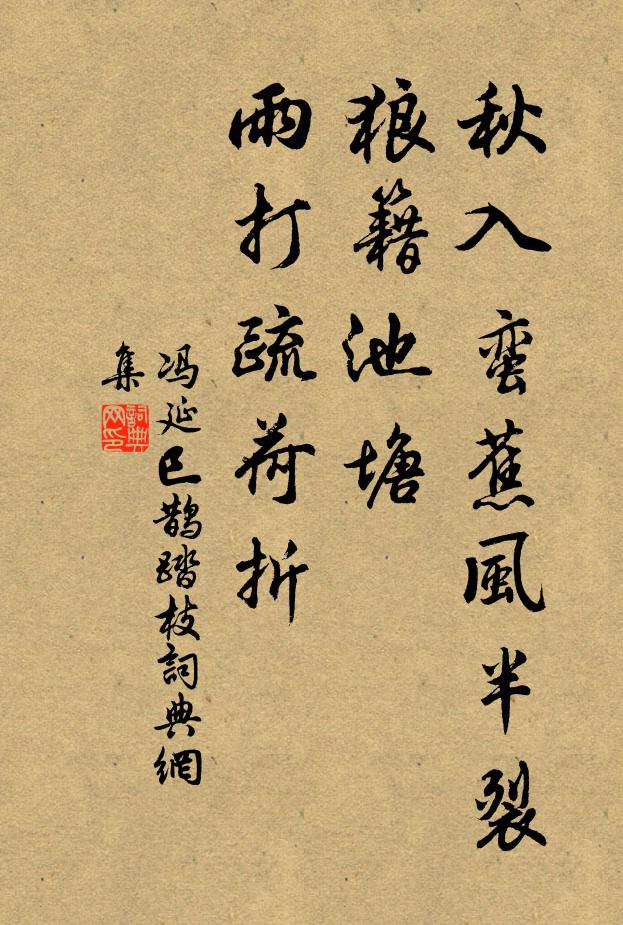 秋入蛮蕉風半裂
狼籍池塘
雨打疏荷折
冯延巳鹊踏枝詞典網
集
詞典
网印